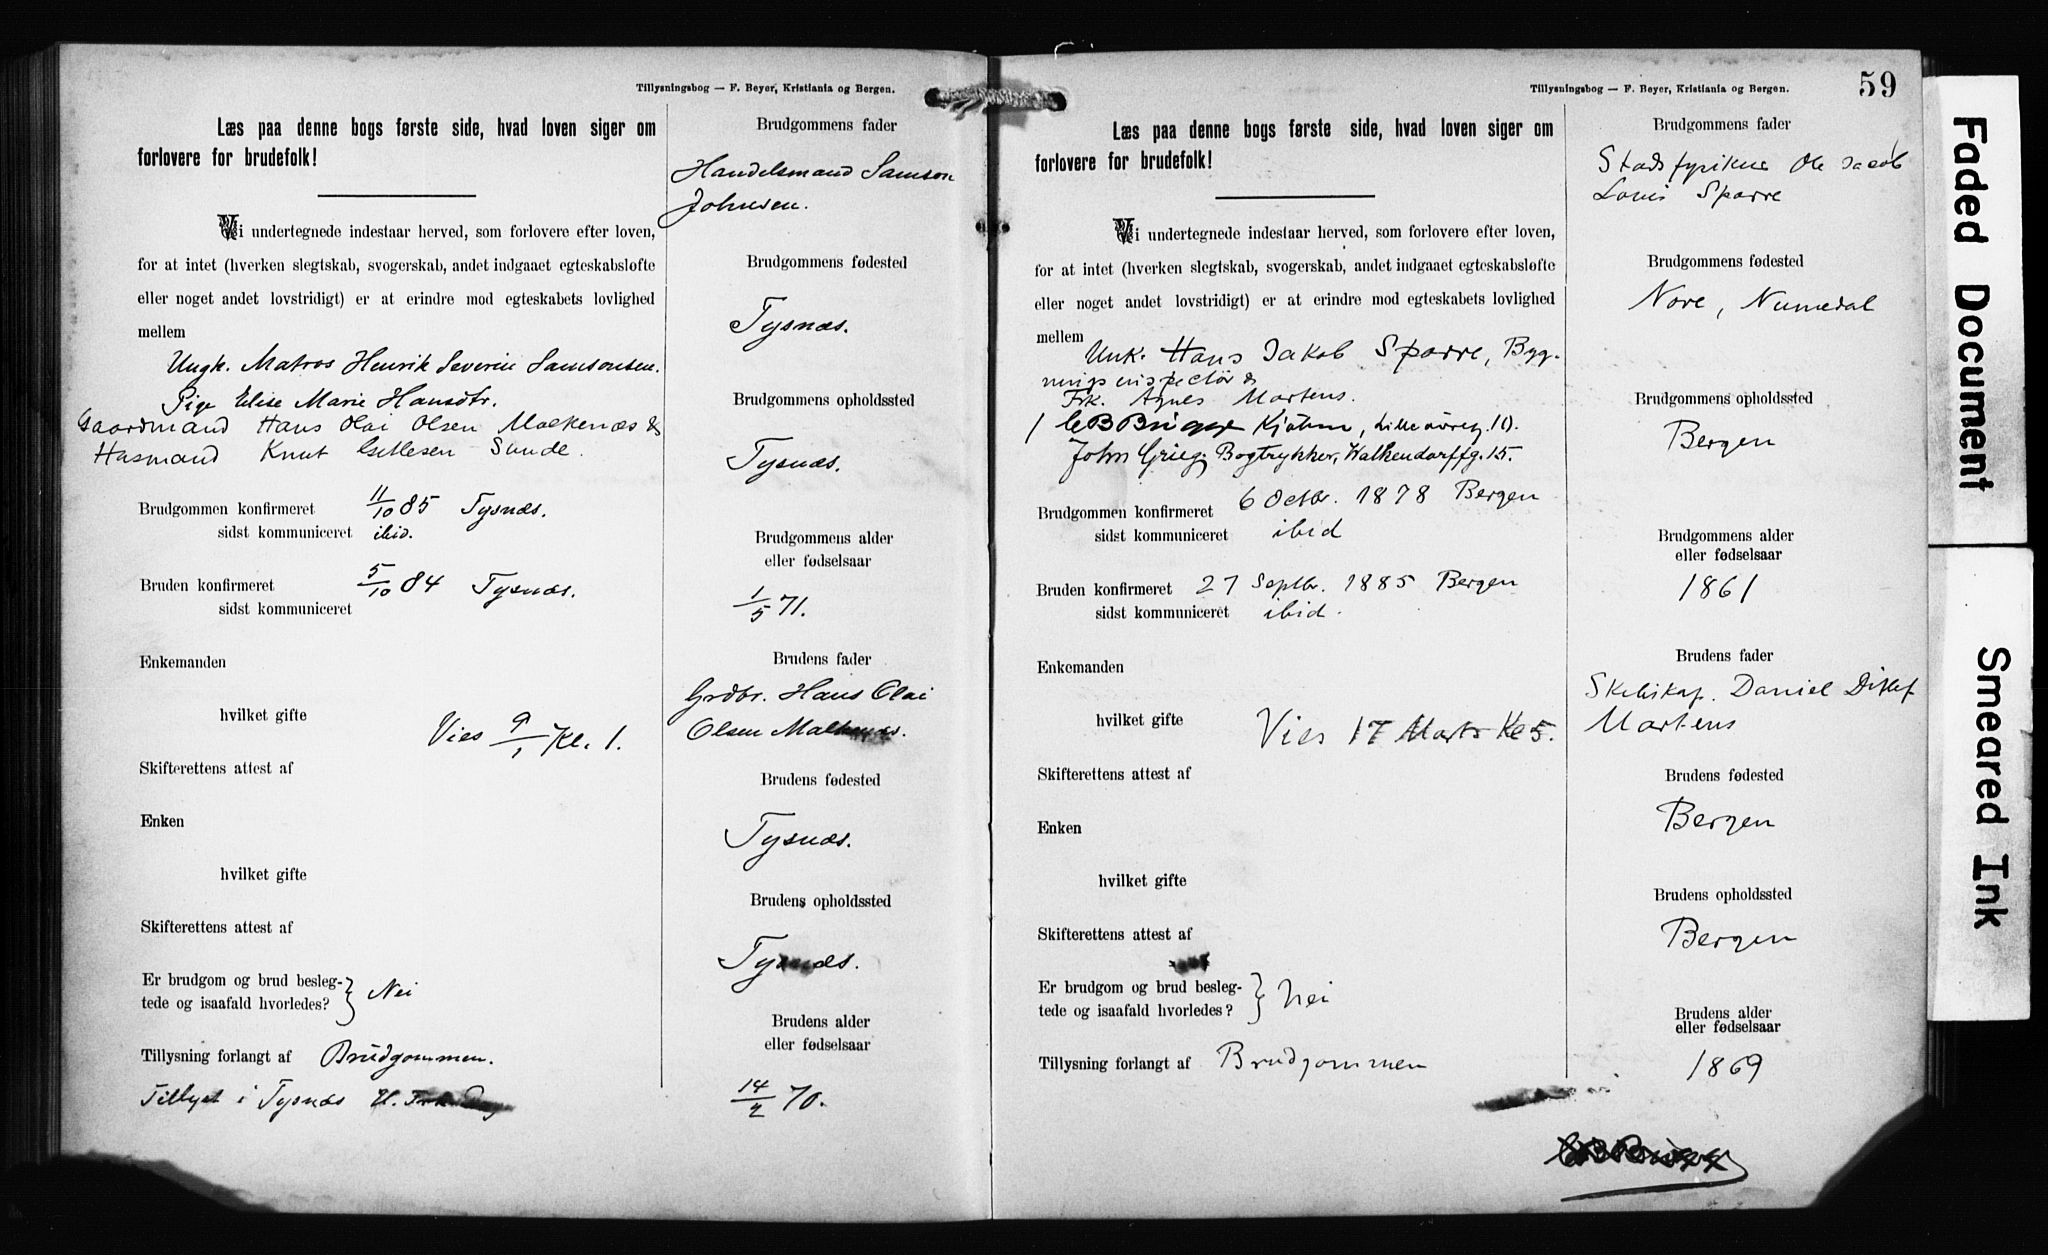 Tillysningsbog — F. Beyer, Kristiania og Bergen.
Læs paa denne bogs første side, hvad loven siger om
forlovere for brudefolk!
Vi undertegnede indestaar herved, som forlovere efter loven,
for at intet (hverken slegtskab, svogerskab, andet indgaaet egteskabsløfte
eller noget andet lovstridigt) er at erindre mod egteskabets lovlighed
mellem
Ungk. Matros Henrik Severin Samsonsen.
Pige Elise Marie Hansdtr.
Gaardmand Hans Olai Olsen Malkenæs &
Husmand Knut Gitlesen Sunde.
Brudgommen konfirmeret 11/10 85 Tysnæs.
sidst kommuniceret ibid.
Bruden konfirmeret 5/10 84 Tysnæs.
sidst kommuniceret
Enkemanden
hvilket gifte
Vies 9/1 Kl. 1.
Skifterettens attest af
Enken
hvilket gifte
Skifterettens attest af
Er brudgom og brud besleg-
tede og isaafald hvorledes? } Nei
Tillysning forlangt af Brudgommen.
Tillyst i Tysnæs
Brudgommens fader
Handelsmand Samson
Johnsen.
Brudgommens fødested
Tysnæs.
Brudgommens opholdssted
Tysnæs.
Brudgommens alder
eller fødselsaar
1/5 71.
Brudens fader
Grdbr. Hans Olai
Olsen Malkenæs.
Brudens fødested
Tysnæs.
Brudens opholdssted
Tysnæs.
Brudens alder
eller fødselsaar
14/2 70.
Tillysningsbog — F. Beyer, Kristiania og Bergen.
59
Læs paa denne bogs første side, hvad loven siger om
forlovere for brudefolk!
Vi undertegnede indestaar herved, som forlovere efter loven,
for at intet (hverken slegtskab, svogerskab, andet indgaaet egteskabsløfte
eller noget andet lovstridigt) er at erindre mod egteskabets lovlighed
mellem
Unk. Hans Jakob Sparre, Byg-
ningsinspectør &
Frk. Agnes Martens.
Kjøbm, Lille øvreg. 10.
John Grieg, Bogtrykker, Walkendorffg. 15.
Brudgommen konfirmeret 6 Octbr. 1878 Bergen
sidst kommuniceret ibid
Bruden konfirmeret 27 Septbr. 1885 Bergen
sidst kommuniceret ibid.
Enkemanden
hvilket gifte
Vies 17 Marts Kl 5.
Skifterettens attest af
Enken
hvilket gifte
Skifterettens attest af
Er brudgom og brud besleg-
tede og isaafald hvorledes? } Nei
Tillysning forlangt af Brudgommen
Brudgommens fader
Stadsfysikus Ole Jacob
Louis Sparre
Brudgommens fødested
Nore, Numedal
Brudgommens opholdssted
Bergen
Brudgommens alder
eller fødselsaar
1861
Brudens fader
Skibskap. Daniel Ditlef
Martens
Brudens fødested
Bergen
Brudens opholdssted
Bergen
Brudens alder
eller fødselsaar
1869
Faded Document
Smeared Ink